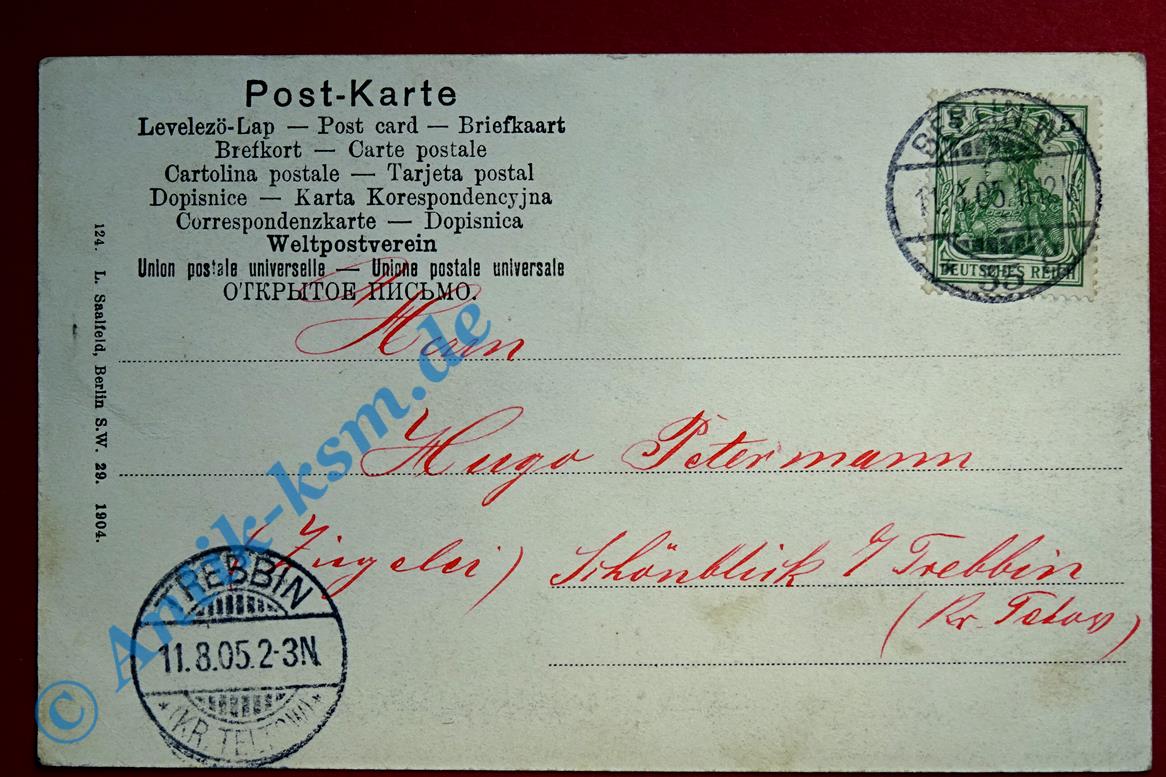 Post-Karte
Levelezö-Lap — Post card — Briefkaart
Brefkort — Carte postale
Cartolina postale — Tarjeta postal
Dopisnice — Karta Korespondencyjna
Correspondenzkarte — Dopisnica
Weltpostverein
Union postale universelle — Unione postale universale
ОТКРЫТОЕ ПИСЬМО.
BERLIN
5 5
DEUTSCHES REICH
Herrn
Hugo Petermann
(Ziegelei) Schönblick b/ Trebbin
(Kr. Teltow)
124. L. Saalfeld, Berlin S.W. 29. 1904.
TREBBIN
11.8.05.2-3N.
* (KR. TELTOW) *
© Annik-ksm.de